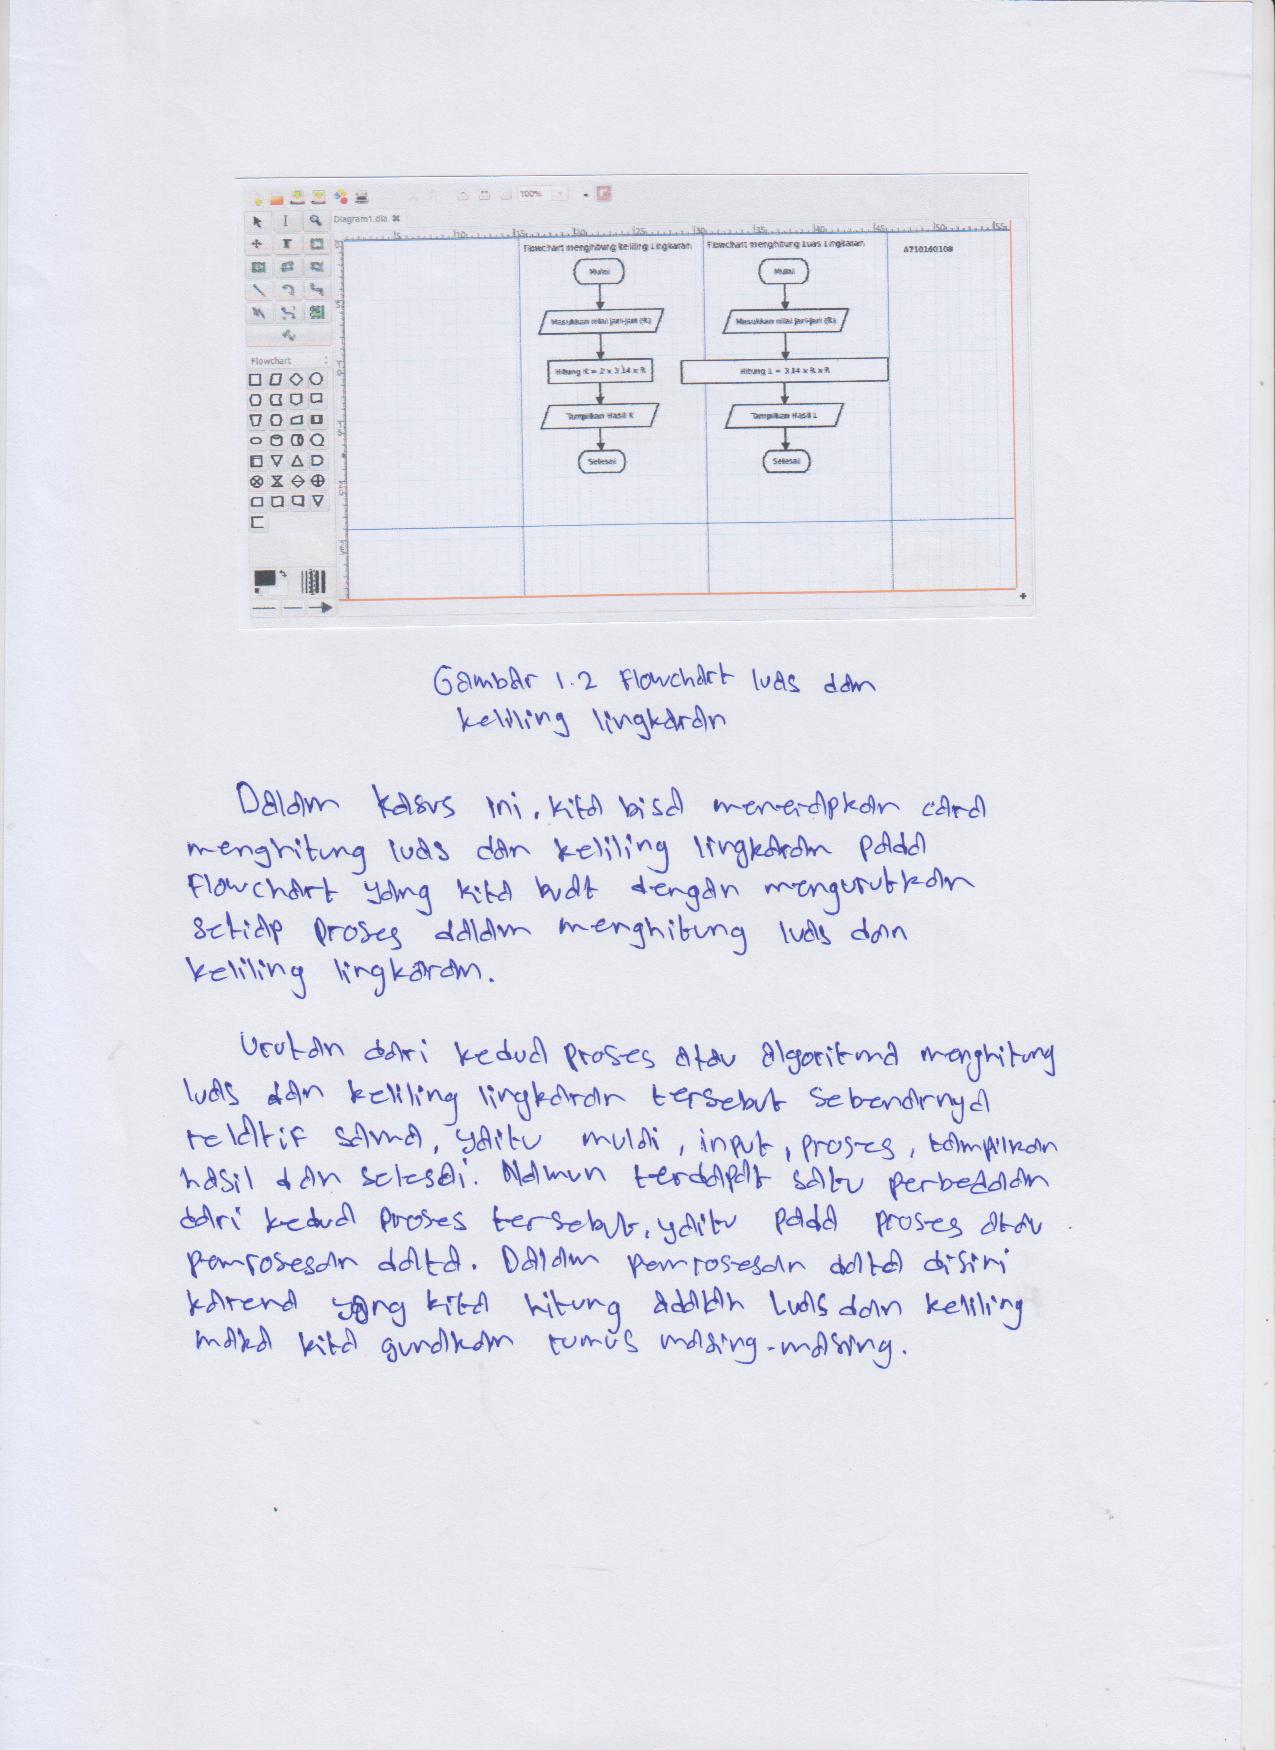 100%
Diagram1.dia
5 10 15 20 25 30 35 40 45 50 55
Flowchart menghitung Keliling Lingkaran
Mulai
Masukkan nilai jari-jari (R)
Hitung K = 2 x 3.14 x R
Tampilkan Hasil K
Selesai
Flowchart menghitung Luas Lingkaran
Mulai
Masukkan nilai jari-jari (R)
Hitung L = 3.14 x R x R
Tampilkan Hasil L
Selesai
A710160108
Flowchart
Gambar 1.2 Flowchart luas dan
keliling lingkaran
Dalam kasus ini, kita bisa menerapkan cara
menghitung luas dan keliling lingkaran pada
flowchart yang kita buat dengan mengurutkan
setiap proses dalam menghitung luas dan
keliling lingkaran.
Urutan dari kedua proses atau algoritma menghitung
luas dan keliling lingkaran tersebut sebenarnya
relatif sama, yaitu mulai, input, proses, tampilkan
hasil dan selesai. Namun terdapat satu perbedaan
dari kedua proses tersebut, yaitu pada proses atau
pemrosesan data. Dalam pemrosesan data disini
karena yang kita hitung adalah luas dan keliling
maka kita gunakan rumus masing-masing.